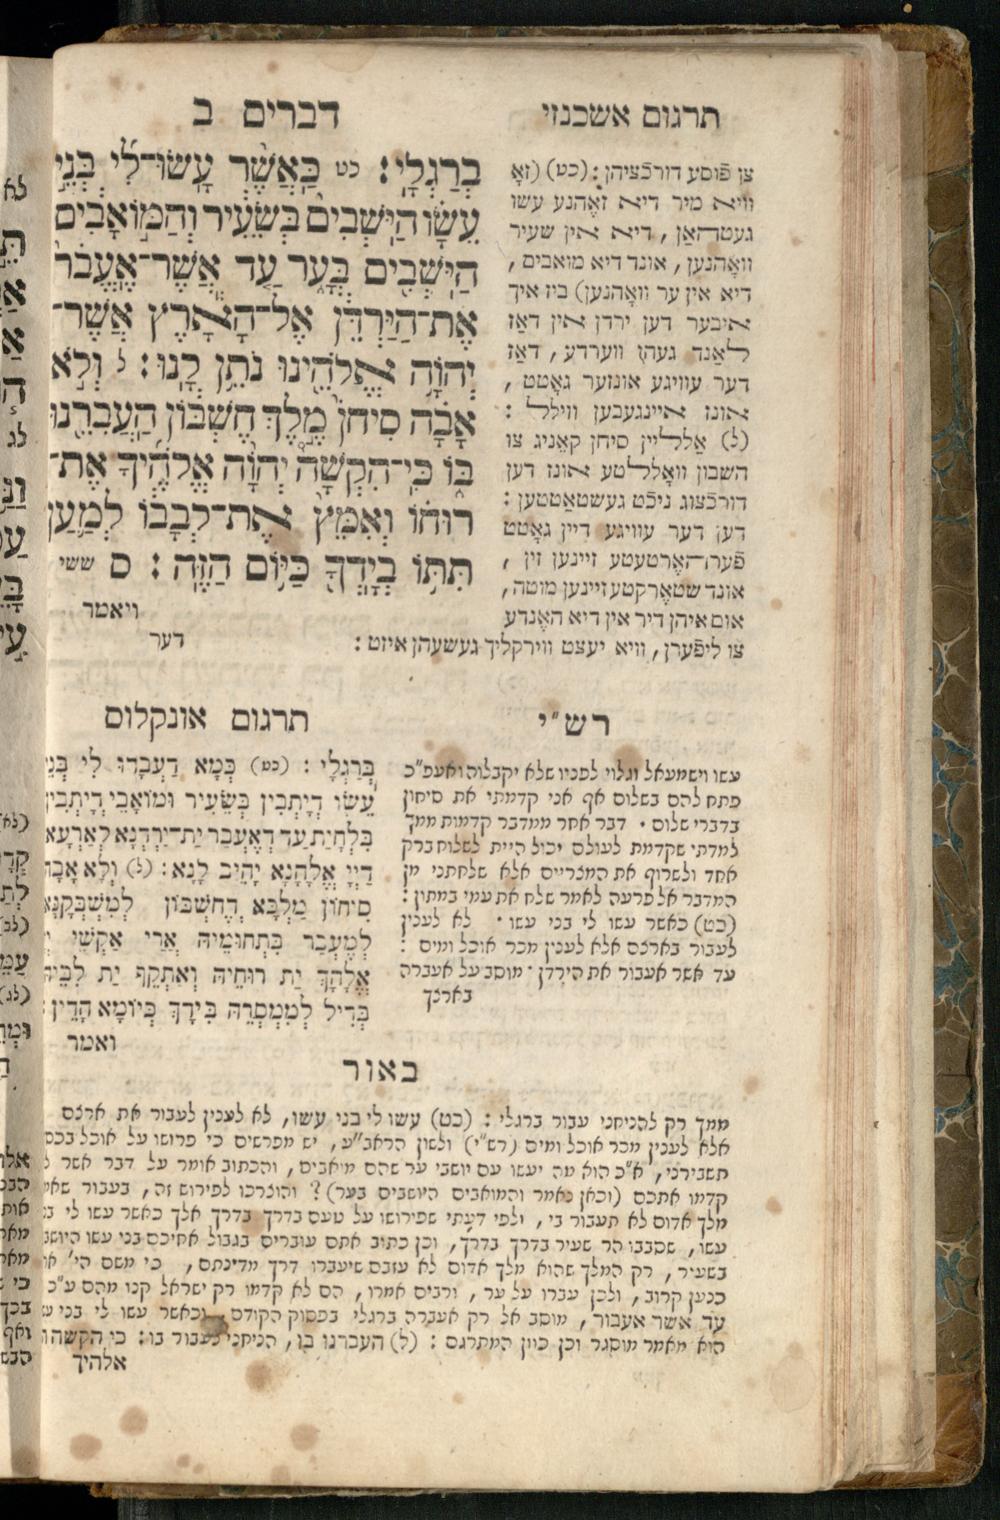 תרגום אשכנזי
דברים ב
בְרַגְלָי׃ כט כַּאֲשֶׁר עָשׂוּ־לִי בְּנֵי
עֵשָׂו הַיֹּשְׁבִים בְּשֵׂעִיר וְהַמּוֹאָבִים
הַיֹּשְׁבִים בְּעָר עַד אֲשֶׁר־אֶעֱבֹר
אֶת־הַיַּרְדֵּן אֶל־הָאָרֶץ אֲשֶׁר־
יְהוָֹה אֱלֹהֵינוּ נֹתֵן לָנוּ׃ ל וְלֹא
אָבָה סִיחֹן מֶלֶךְ חֶשְׁבּוֹן הַעֲבִרֵנוּ
בּוֹ כִּי־הִקְשָׁה יְהוָֹה אֱלֹהֶיךָ אֶת־
רוּחוֹ וְאִמֵּץ אֶת־לְבָבוֹ לְמַעַן
תִּתּוֹ בְיָדְךָ כַּיּוֹם הַזֶּה׃ ס ששי
ויאמר
צו פֿוסע דורכֿציהן: (כט) (זאָ
וויא מיר דיא זאֶהנע עשו
געטהאן, דיא אין שעיר
וואָהנען, אונד דיא מואבים,
דיא אין ער וואָהנען) ביז איך
איבער דען ירדן אין דאז
לאַנד געהן ווערדע, דאַז
דער עוויגע אונזער גאָטט,
אונז איינגעבען ווילל:
(ל) אַלליין סיחן קאֶניג צו
השבון וואָללטע אונז דען
דורכֿצוג ניכֿט געשטאַטטען:
דען דער עוויגע דיין גאָטט
פֿערהאֶרטעטע זיינען זין,
אונד שטאֶרקטע זיינען מוטה,
אום איהן דיר אין דיא האֶנדע
צו ליפֿערן, וויא יעצט ווירקליך געשעהן איזט:
דער
רש״י
עשו וישמעאל וגלוי לפניו שלא יקבלוה ואעפ״כ
פתח להם בשלום אף אני קדמתי את סיחון
בדברי שלום. דבר אחר ממדבר קדמות ממך
למדתי שקדמת לעולם יכול היית לשלוח ברק
אחד ולשרוף את המצריים אלא שלחתני מן
המדבר אל פרעה לאמר שלח את עמי במתון:
(כט) כאשר עשו לי בני עשו. לא לענין
לעבור בארצם אלא לענין מכר אוכל ומים:
עד אשר אעבור את הירדן. מוסב על אעברה
בארצך
תרגום אונקלוס
בְּרַגְלָי: (כט) כְּמָא דַעֲבָדוּ לִי בְּנֵי
עֵשָׂו דְיָתְבִין בְּשֵׂעִיר וּמוֹאָבֵי דְיָתְבִין
בִּלְחָיַת עַד דְאֶעְבַּר יַת־יַרְדְּנָא לְאַרְעָא
דַיְיָ אֱלָהָנָא יָהֵיב לָנָא: (ל) וְלָא אָבָה
סִיחוֹן מַלְכָּא דְחֶשְׁבּוֹן לְמִשְׁבְּקָנָא
לְמֶעְבַּר בִּתְחוּמֵיהּ אֲרֵי אַקְשִׁי
אֱלָהָךְ יַת רוּחֵיהּ וְאַתְקֵף יַת לִבֵּיהּ
בְּדִיל לְמִמְסְרֵהּ בִּידָךְ כְּיוֹמָא הָדֵין:
ואמר
באור
ממך רק להניחני עבור ברגלי: (כט) עשו לי בני עשו, לא לענין לעבור את ארצם
אלא לענין מכר אוכל ומים (רש״י) ולשון הראב״ע, יש מפרשים כי פרושו על אוכל בכסף
תשבירני, א״כ הוא מה יעשו עם יושבי ער שהם מואבים, והכתוב אומר על דבר אשר לא
קדמו אתכם (וכאן נאמר והמואבים היושבים בער)? והוצרכו לפירוש זה, בעבור שאמר
מלך אדום לא תעבור בי, ולפי דעתי שפירושו על טעם בדרך בדרך אלך כאשר עשו לי בני
עשו, שסבבו הר שעיר בדרך בדרך, וכן כתוב אתם עוברים בגבול אחיכם בני עשו היושבים
בשעיר, רק המלך שהוא מלך אדום לא עזבם שיעברו דרך מדינתם, כי משם הי׳
כנען קרוב, ולכן עברו על ער, ורבים אמרו, הם לא קדמו רק ישראל קנו מהם ע״כ:
עד אשר אעבור, מוסב אל רק אעברה ברגלי בפסוק הקודם, וכאשר עשו לי בני עשו
הוא מאמר מוסגר וכן כוון המתרגם: (ל) העברנו בו, הניחני לעבור בו: כי הקשה ה׳
אלהיך